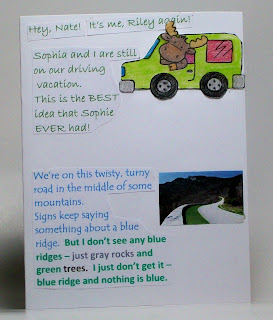 Hey, Nate!  It's me, Riley again!
Sophia and I are still
on our driving
vacation.
This is the BEST
idea that Sophie
EVER had!
We're on this twisty, turny
road in the middle of some
mountains.
Signs keep saying
something about a blue
ridge.  But I don't see any blue
ridges – just gray rocks and
green trees.  I just don't get it –
blue ridge and nothing is blue.